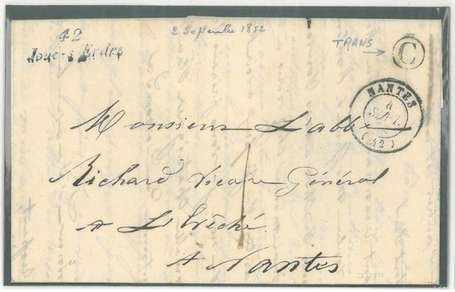 42
Joué-s-Erdre
2 Septembre 1852
TRANS
C
NANTES
4
SEPT.
(42)
Monsieur L'abbé
Richard Vicaire Général
1
à L'Evêché
à Nantes